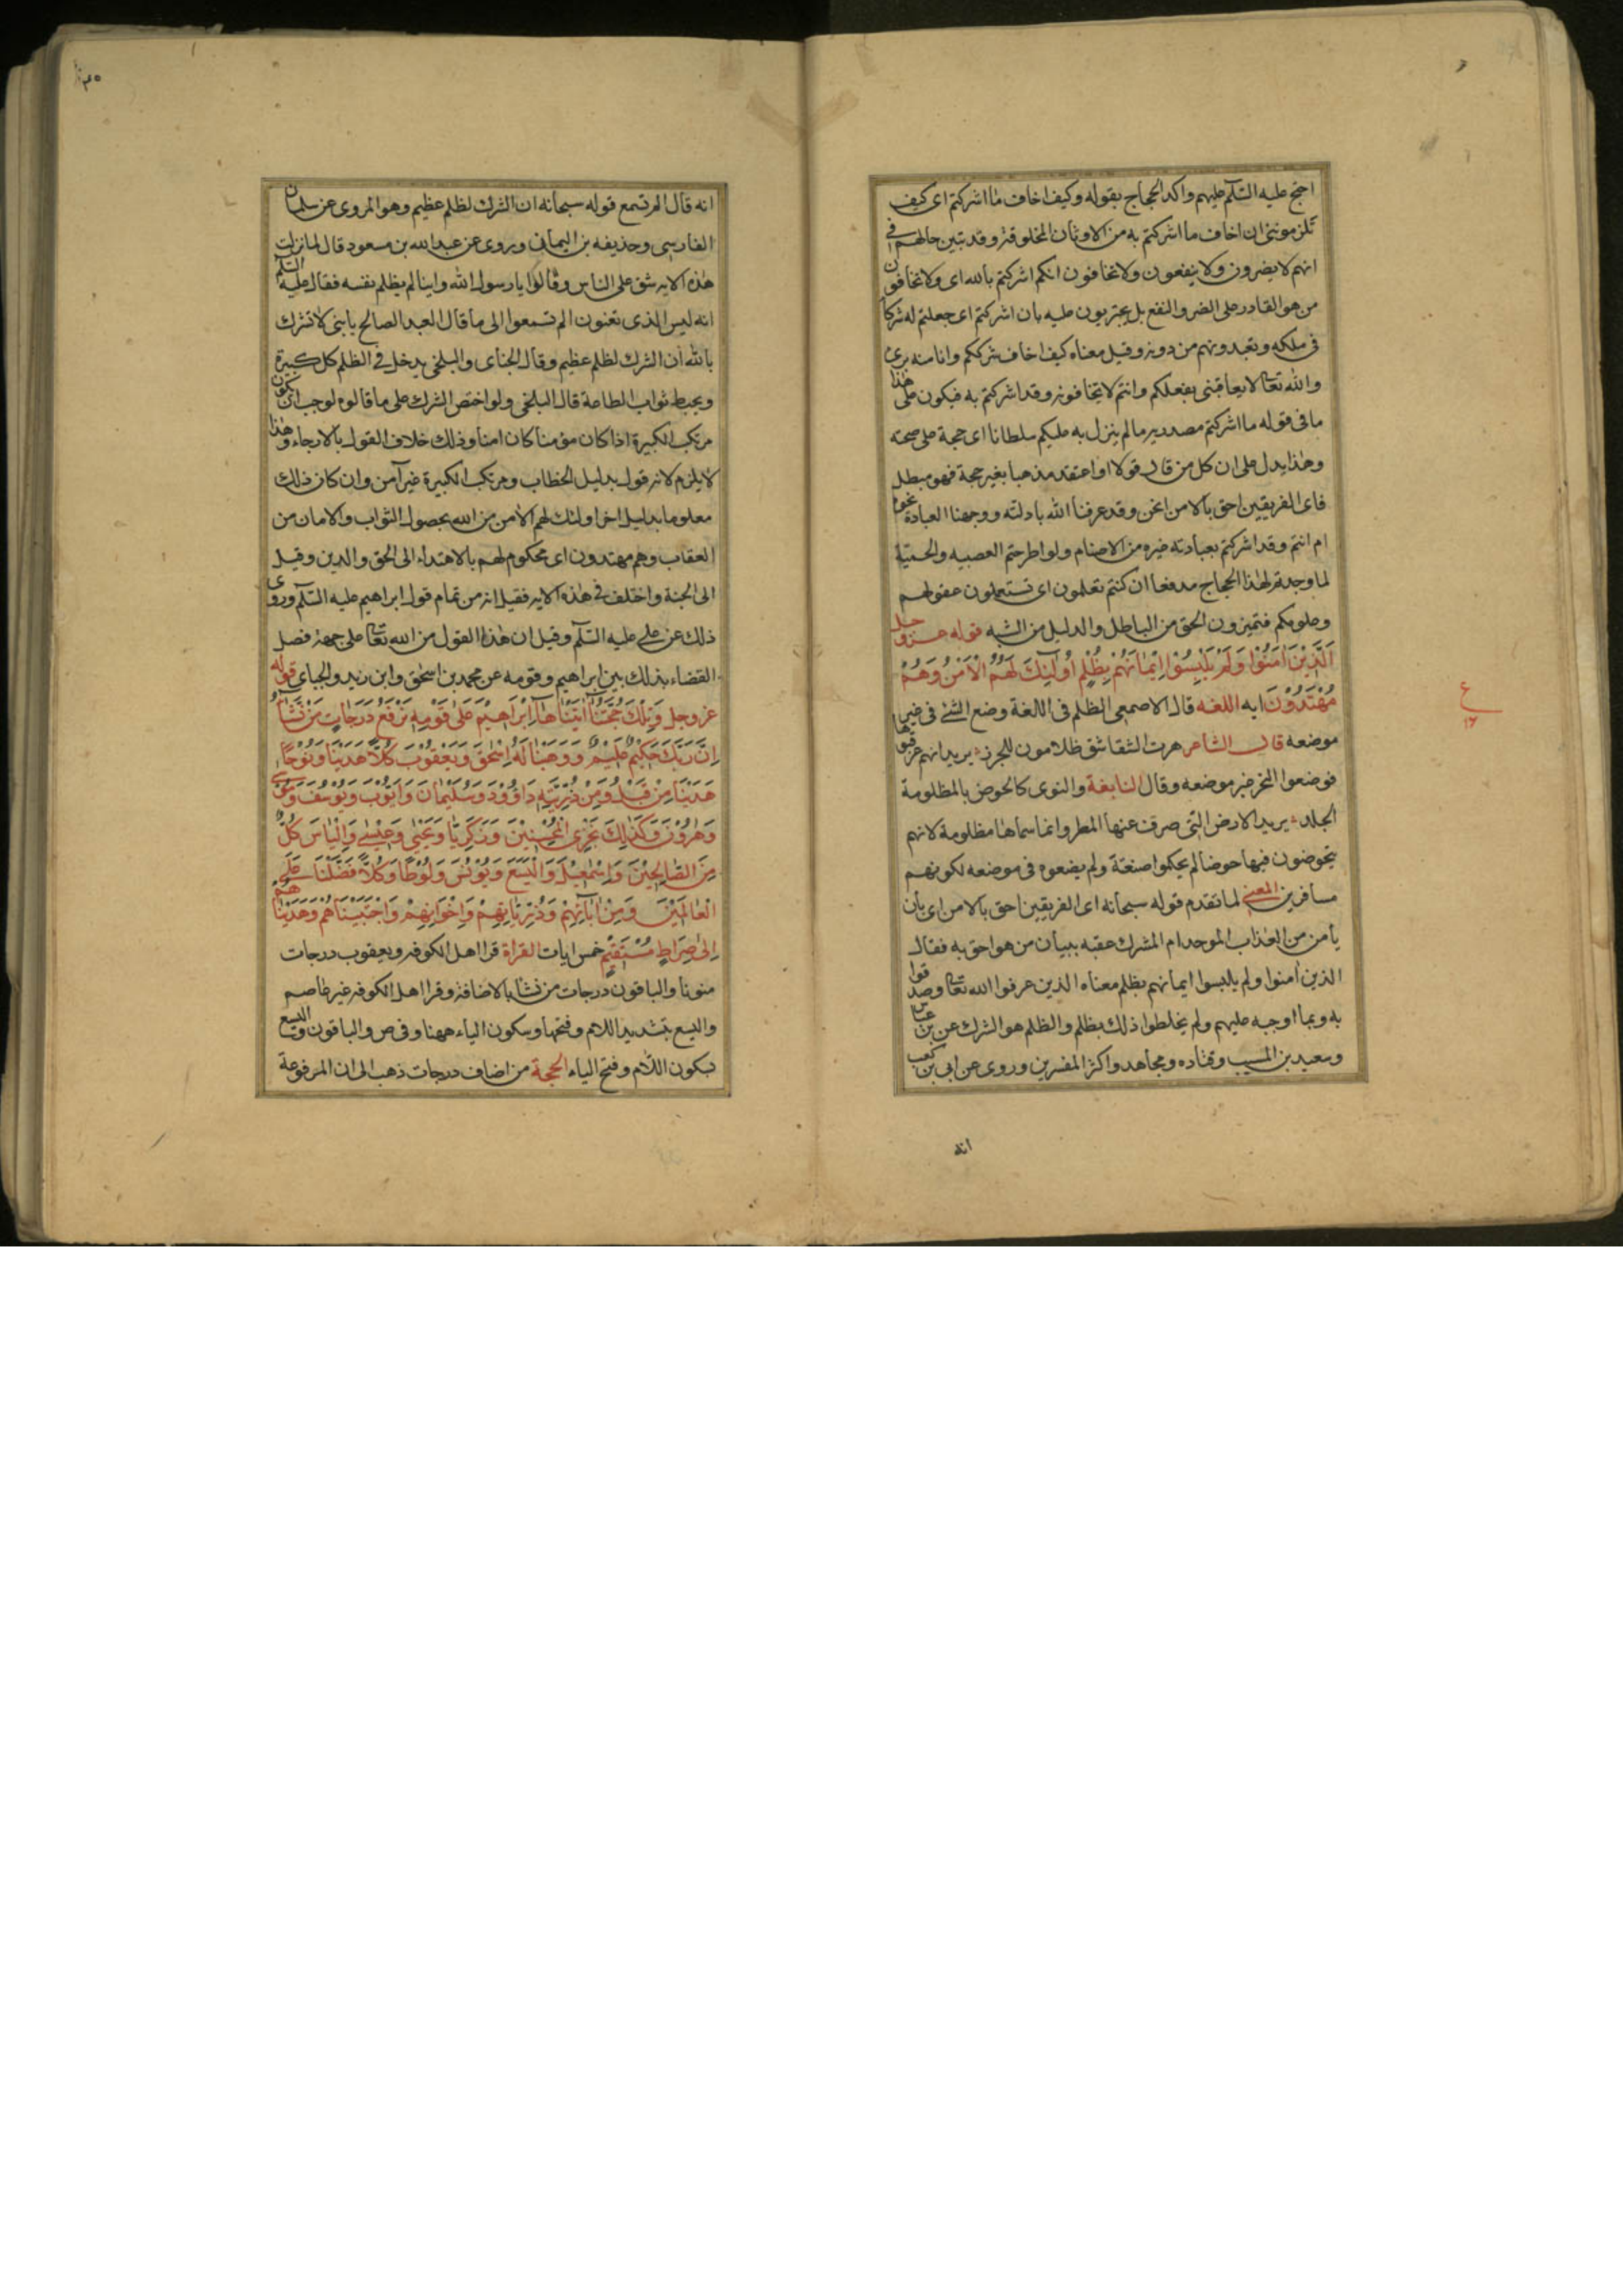 احتج عليه السّلم عليهم واكد الحجاج بقوله وكيف اخاف ما اشركتم اى كيف
تلزمونني ان اخاف ما اشركتم به من الاوثان المخلوقة وقد تبين حالهم في
انهم لا يضرون ولا ينفعون ولا تخافون انكم اشركتم بالله اى ولا تخافون
من هو القادر على الضر والنفع بل يجترون عليه بان اشركتم اى جعلتم له شركا
فى ملكه وتعبدونهم من دونه وقيل معناه كيف اخاف شرككم وانا منه برئ
والله تعا لا يعاقبنى بفعلكم وانتم لا تخافونه وقد اشركتم به فيكون على هذا
ما فى قوله ما اشركتم مصدريه ما لم ينزل به عليكم سلطانا اى حجة على صحته
وهذا يدل على ان كل من قال قولا او اعتقد مذهبا بغير حجة فهو مبطل
فاى الفريقين احق بالامن انحن وقد عرفنا الله بادلته ووجهنا العبادة نحوه
ام انتم وقد اشركتم بعبادته غيره من الاصنام ولو اطرحتم العصبيه والحميّة
لما وجدتم لهذا الحجاج مدفعا ان كنتم تعلمون اى تستعملون عقولهم
وعلومكم فتميزون الحق من الباطل والدليل من الشبه قوله عز وجل
اَلَّذِيْنَ اٰمَنُوْا وَلَمْ يَلْبِسُوْا اِيْمَانَهُمْ بِظُلْمٍ اُولٰئِكَ لَهُمُ الْاَمْنُ وَهُمْ
مُهْتَدُوْنَ ايه اللغه قال الاصمعى الظلم فى اللغة وضع الشئ فى غير
موضعه قال الشاعر هرت الشقاشق ظلامون للجزر يريد انهم عرقبوها
فوضعوا النحر غير موضعه وقال النابغة والنوى كالحوض بالمظلومة
الجلد يريد الارض التى صرف عنها المطر وانما سماها مظلومة لانهم
يتحوضون فيها حوضا لم يحكموا صنعته ولم يضعوه فى موضعه لكونهم
مسافرين المعنى لما تقدم قوله سبحانه اى الفريقين احق بالامن اى بأن
يأمن من العذاب الموحد ام المشرك عقبه ببيان من هو احق به فقال
الذين امنوا ولم يلبسوا ايمانهم بظلم معناه الذين عرفوا الله تعا وصدقوا
به وبما اوجبه عليهم ولم يخلطوا ذلك بظلم والظلم هو الشرك عن بن عباس
وسعيد بن المسيب وقتاده ومجاهد واكثر المفسرين وروى عن ابى بن كعب
انه
انه قال الم تسمع قوله سبحانه ان الشرك لظلم عظيم وهو المروى عن سلمان
الفارسى وحذيفه بن اليمان وروى عن عبد الله بن مسعود قال لما نزلت
هذه الايه شق على الناس وقالوا يا رسول الله واينا لم يظلم نفسه فقال عليه السّلم
انه ليس الذى تعنون الم تسمعوا الى ما قال العبد الصالح يا بنى لا تشرك
بالله ان الشرك لظلم عظيم وقال الجبائى والبلخى يدخل فى الظلم كل كبيرة
ويحبط ثواب الطاعة قال البلخى ولو اختص الشرك على ما قالوه لوجب ان يكون
مرتكب الكبيرة اذا كان مؤمنا كان امنا وذلك خلاف القول بالارجاء وهذا
لا يلزم لانه قول بدليل الخطاب ومرتكب الكبيرة غير آمن وان كان ذلك
معلوما بدليل اخر اولئك لهم الامن من الله بحصول الثواب والامان من
العقاب وهم مهتدون اى محكوم لهم بالاهتداء الى الحق والدين وقيل
الى الجنة واختلف فى هذه الايه فقيل انه من تمام قول ابراهيم عليه السّلم وروى
ذلك عن على عليه السّلم وقيل ان هذا القول من الله تعا على جهة فصل
القضاء بذلك بين ابراهيم وقومه عن محمد بن اسحق وابن زيد والجبائى قوله
عز وجل وَتِلْكَ حُجَّتُنَا اٰتَيْنَاهَا اِبْرَاهِيْمَ عَلىٰ قَوْمِهٖ نَرْفَعُ دَرَجَاتٍ مَنْ نَشَآءُ
اِنَّ رَبَّكَ حَكِيْمٌ عَلِيْمٌ وَوَهَبْنَا لَهُ اِسْحٰقَ وَيَعْقُوْبَ كُلًّا هَدَيْنَا وَنُوْحًا
هَدَيْنَا مِنْ قَبْلُ وَمِنْ ذُرِّيَّتِهٖ دَاوُوْدَ وَسُلَيْمَانَ وَاَيُّوْبَ وَيُوْسُفَ وَمُوسٰى
وَهٰرُوْنَ وَكَذٰلِكَ نَجْزِى الْمُحْسِنِيْنَ وَزَكَرِيَّا وَيَحْيٰى وَعِيْسٰى وَاِلْيَاسَ كُلٌّ
مِنَ الصَّالِحِيْنَ وَاِسْمٰعِيْلَ وَالْيَسَعَ وَيُوْنُسَ وَلُوْطًا وَكُلًّا فَضَّلْنَا عَلَى
الْعَالَمِيْنَ وَمِنْ اٰبَآئِهِمْ وَذُرِّيَّاتِهِمْ وَاِخْوَانِهِمْ وَاجْتَبَيْنَاهُمْ وَهَدَيْنَاهُمْ
اِلىٰ صِرَاطٍ مُسْتَقِيْمٍ خمس ايات القراة قرا اهل الكوفه ويعقوب درجات
منونا والباقون درجات من نشا بالاضافة وقرا اهل الكوفه غير عاصم
والليسع بتشديد اللام وفتحها وسكون الياء ههنا وفى ص والباقون واليسع
بسكون اللام وفتح الياء الحجة من اضاف درجات ذهب الى ان المرفوعة